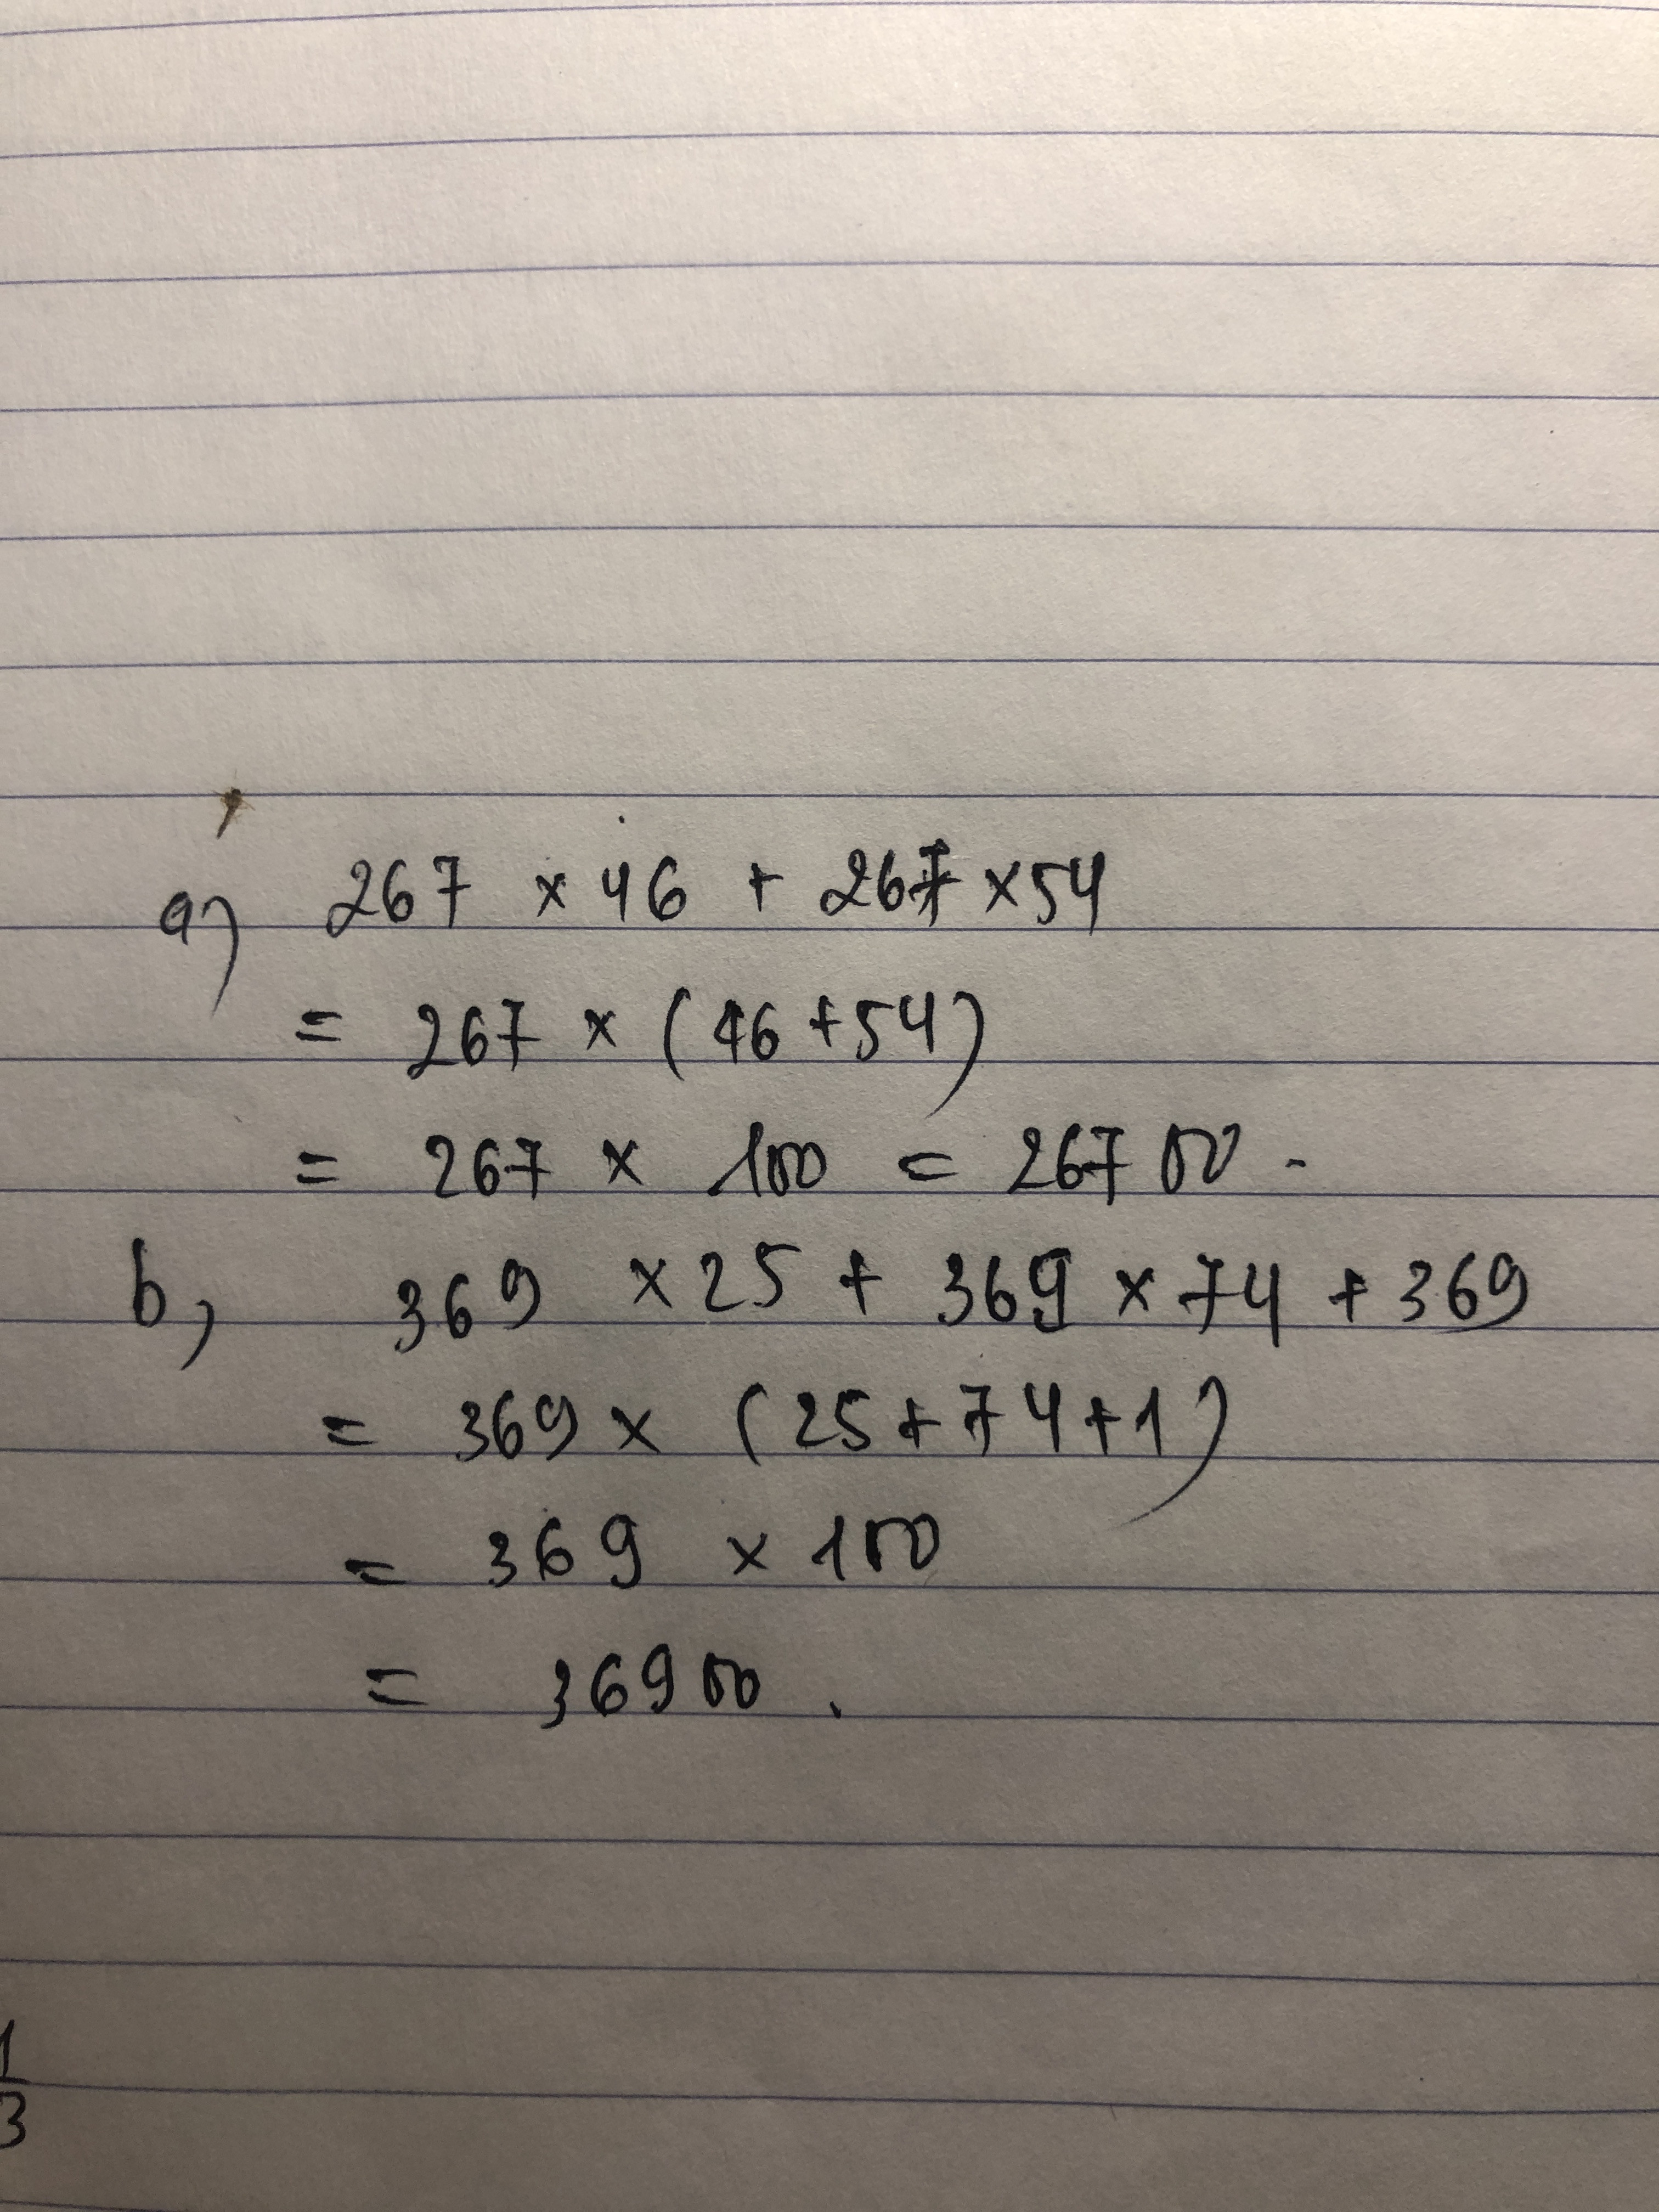 a) 267 × 46 + 267 × 54
= 267 × (46 + 54)
= 267 × 100 = 26700.
b, 369 × 25 + 369 × 74 + 369
= 369 × (25 + 74 + 1)
= 369 × 100
= 36900.
1
3